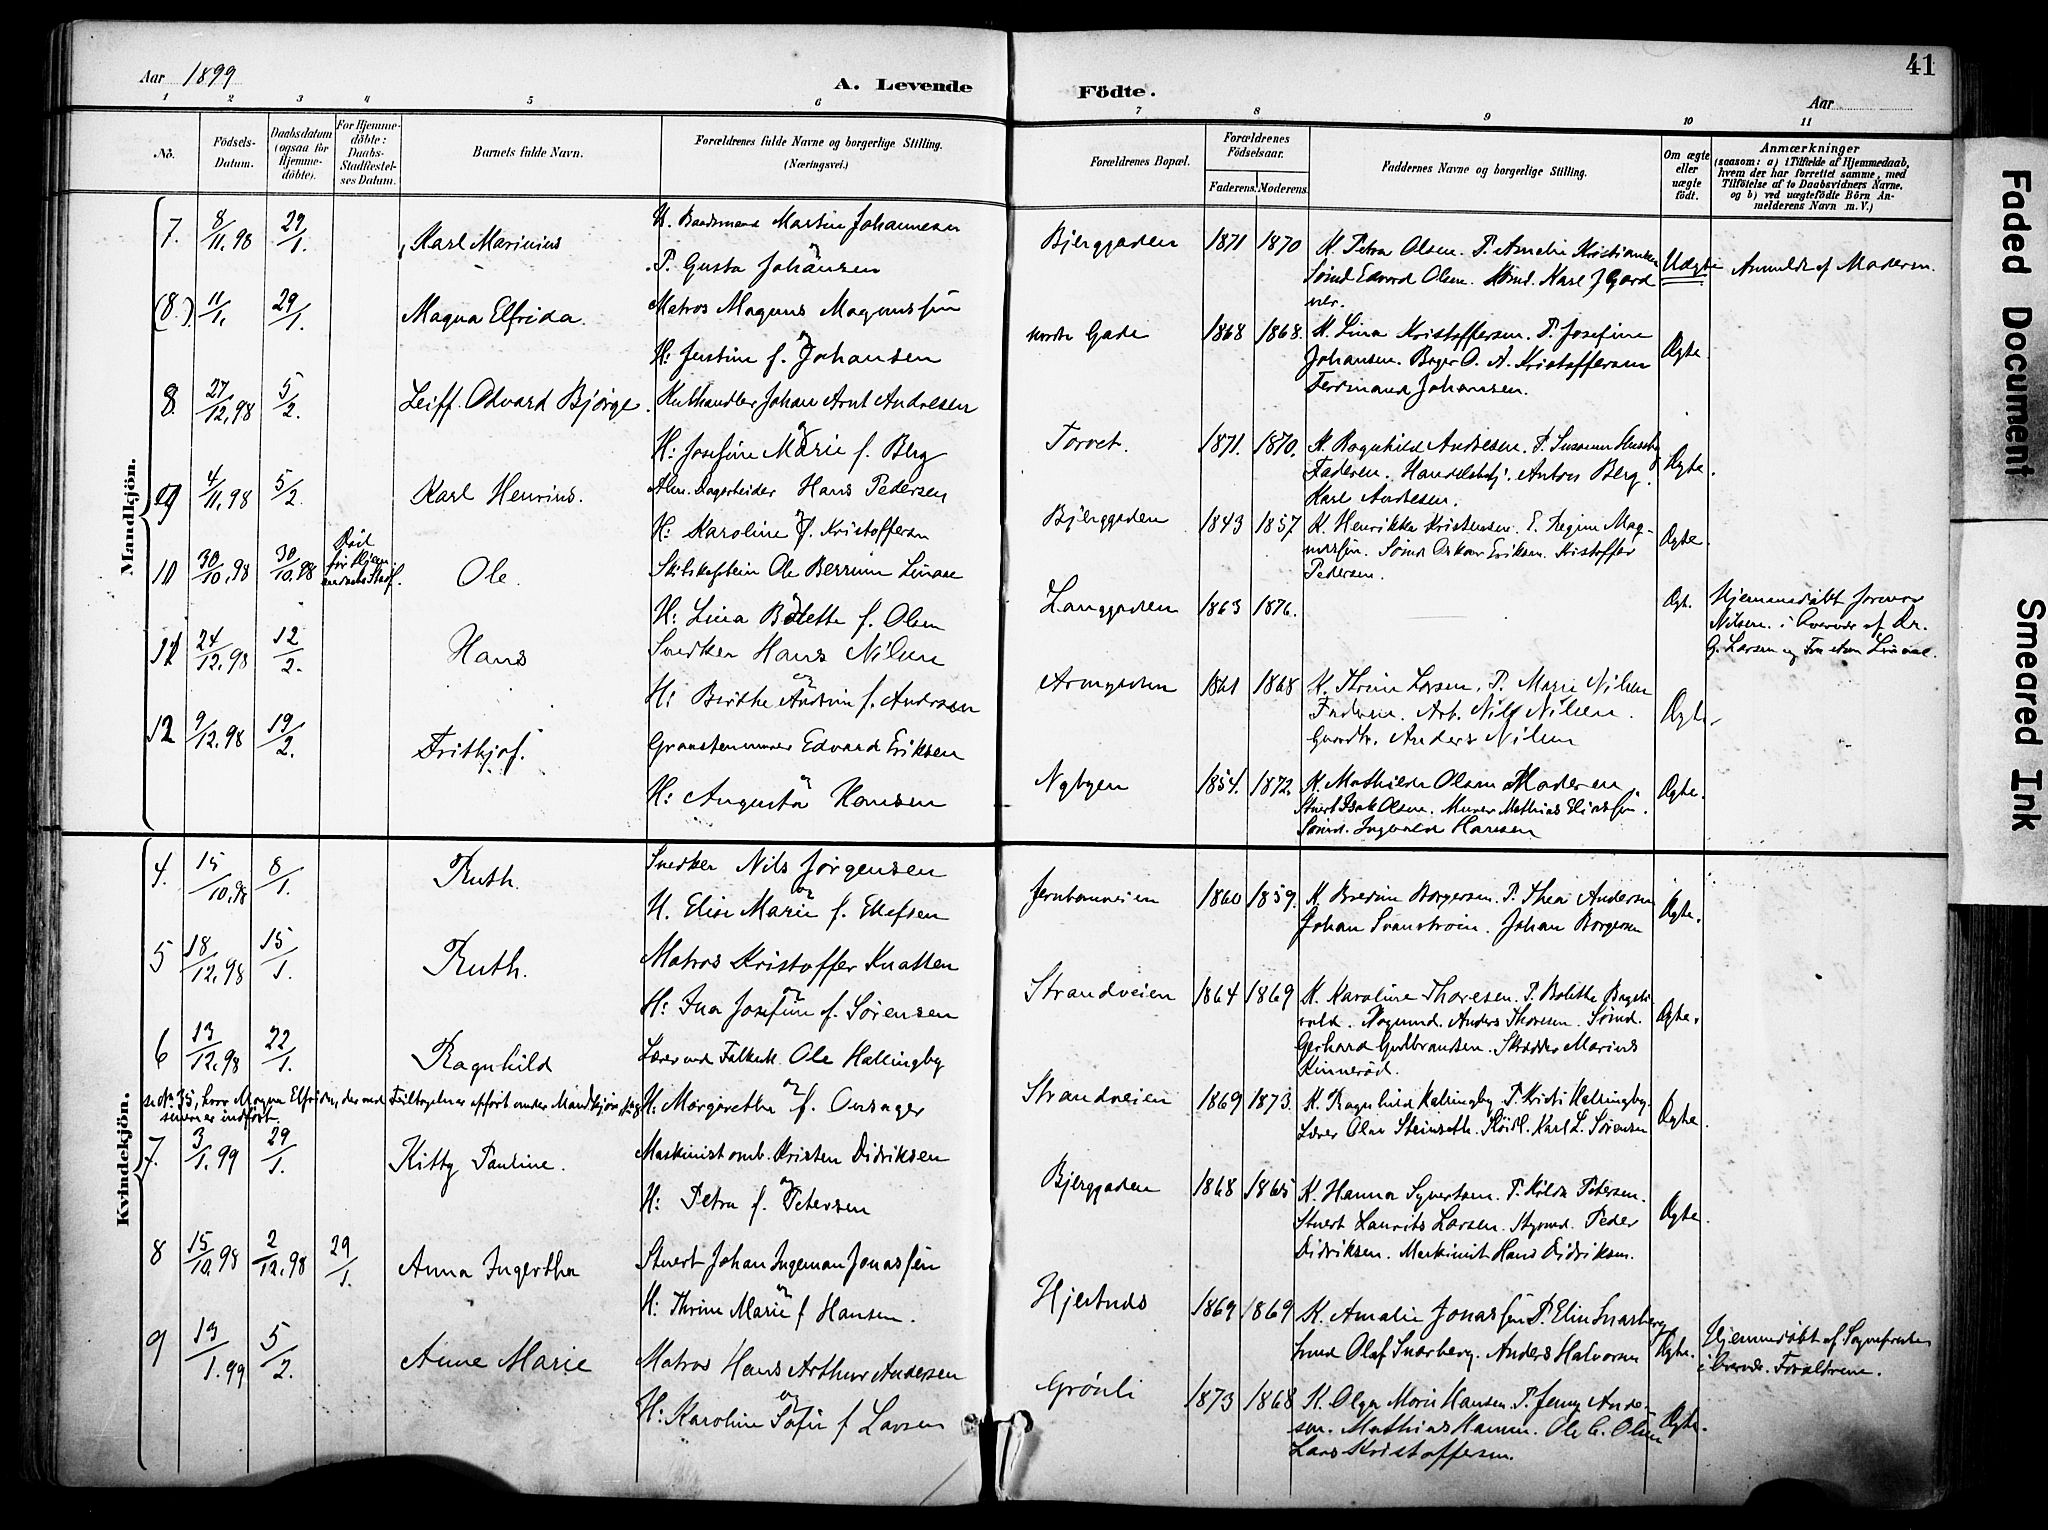 Aar 1899
A. Levende
Födte.
Aar
41
1 2 3 4 5 6 7 8 9 10 11
No.
Födsels-
Datum.
Daabsdatum
(ogsaa for
Hjemme-
döbte).
For Hjemme-
döbte:
Daabs-
Stadfæstel-
ses Datum.
Barnets fulde Navn.
Forældrenes fulde Navne og borgerlige Stilling.
(Næringsvei.)
Forældrenes Bopæl.
Forældrenes
Födselsaar.
Faderens. Moderens.
Faddernes Navne og borgerlige Stilling.
Om ægte
eller
uægte
født.
Anmærkninger
(saasom: a) i Tilfælde af Hjemmedaab,
hvem der har forrettet samme, med
Tilföielse af to Daabsvidners Navne,
og b) ved uægtefödte Börn An-
melderens Navn m. V.)
Mandkjön.
7. 8/11.98 29/1. Karl Marinius
Martin Johannesen
P. Gusta Johansen
Bjerggaden 1871 1870
K. Petra Olsen. P. Amalie Kristiansen
Sømd Edvard Olsen. Sømd. Karl J Gard
ner.
Uægte
Anmeldt af Moderen.
(8.) 11/1. 29/1. Magna Elfrida.
Matros Magnus Magnussen
og
H: Justine f. Johansen
Nordre Gade 1868 1868.
K. Lina Kristoffersen. P. Josefine
Johansen. Bager O. A. Kristoffersen
Ferdinand Johansen.
Ægte.
8 27/12.98 5/2. Leiff Odvard Bjørge.
Kulhandler Johan Arnt Andresen
og
H: Josefine Marie f. Berg
Torvet. 1871. 1870.
K. Ragnhild Andresen. P. Susanne
Faderen. Handelsbetj. Anton Berg.
Karl Andresen.
Ægte.
9 4/11.98 5/2. Karl Henrius.
Alm. Dagarbeider Hans Pedersen
og
H: Karoline f. Kristoffersen
Bjerggaden 1843 1857.
K. Henrikke Kristensen. P. Regine Mag-
nussen. Sømd Oskar Eriksen. Kristoffer
Pedersen.
Ægte.
10 30/10.98 30/10.98
Død
før Hjem
Ole.
Skibskaptein Ole Linaae
og
H: Lina Bolette f. Olsen
Langgaden 1863 1876.
Ægt.
Hjemmedøbt
Nilsen. i Overvær af Dr.
G. Larsen og Fru Linaae.
11 24/12.98 12/2. Hans
Snedker Hans Nilsen
og
H: Berthe Andrine f. Andersen
1861 1868
K. Thrine Larsen. P. Marie Nilsen
Faderen. Arb. Nils Nilsen.
Gaardbr. Anders Nilsen
Ægte.
12 9/12.98 19/2. Frithjof.
Edvard Eriksen
og
H: Augusta Hansen
Nybyen 1854. 1872.
K. Mathilde Olsen Moderen
Stuert Isak Olsen. Murer Mathias Eliassen.
Sømd. Ingvald Hansen
Ægte.
Kvindekjön.
4. 15/10.98 8/1. Ruth.
Snedker Nils Jørgensen
og
H. Elise Marie f. Ellefsen
Jernbaneveien 1860 1859.
K. Bredine Borgersen. P. Thea Andersen
Johan Svanstrøm. Johan Borgersen
Ægte.
5 18/12.98 15/1. Ruth.
Matros Kristoffer Knatten
og
H: Ina Josefine f. Sørensen
Strandveien 1864 1869
K. Karoline Thoresen. P. Bolette
vold. Anders Thoresen. Sømd.
Gerhard Gulbrandsen. Skrædder Marius
Kinnerød.
Ægte.
6 13/12.98 22/1. Ragnhild
Lærer ved Folkesk. Ole Hallingby
og
H. Margrethe f. Onsager
Strandveien 1869 1873.
K. Ragnhild Hallingby P. Kirsti Hallingby.
Lærer Olav Steinseth. Karl L. Sørensen
Ægte.
se No 35, hvor Magna Elfrida, der ved Feiltagelse er opført under Mandkjøn
senere er indført.
7. 3/1.99 29/1. Kitty Pauline.
Maskinist omb. Kristen Didriksen
og
H: Petra f. Petersen
Bjerggaden 1868 1865
K. Hanna Syvertsen. P. Hilda Petersen.
Stuert Laurits Larsen. Styrmd. Peder
Didriksen. Maskinist Hans Didriksen.
Ægte.
8 15/10.98 2/12.98 29/1. Anna Ingertha
Stuert Johan Ingeman Jonassen
og
H: Thrine Marie f Hansen.
Hjertnes 1869 1869
K. Amalie Jonassen P. Elise Snarberg
Olaf Snarberg. Anders Halvorsen
Ægte.
Hjemmedøbt af Sognepresten
i Overv. Forældrene.
9 13/1.99 5/2. Anne Marie
Matros Hans Arthur Andersen
og
H: Karoline Sofie f Larsen
Grønli 1873 1868
K. Olga Marie Hansen. P. Jenny Ander-
sen. Mathias Hansen. Ole C. Olsen
Lars Kristoffersen.
Ægte.
Faded Document
Smeared Ink